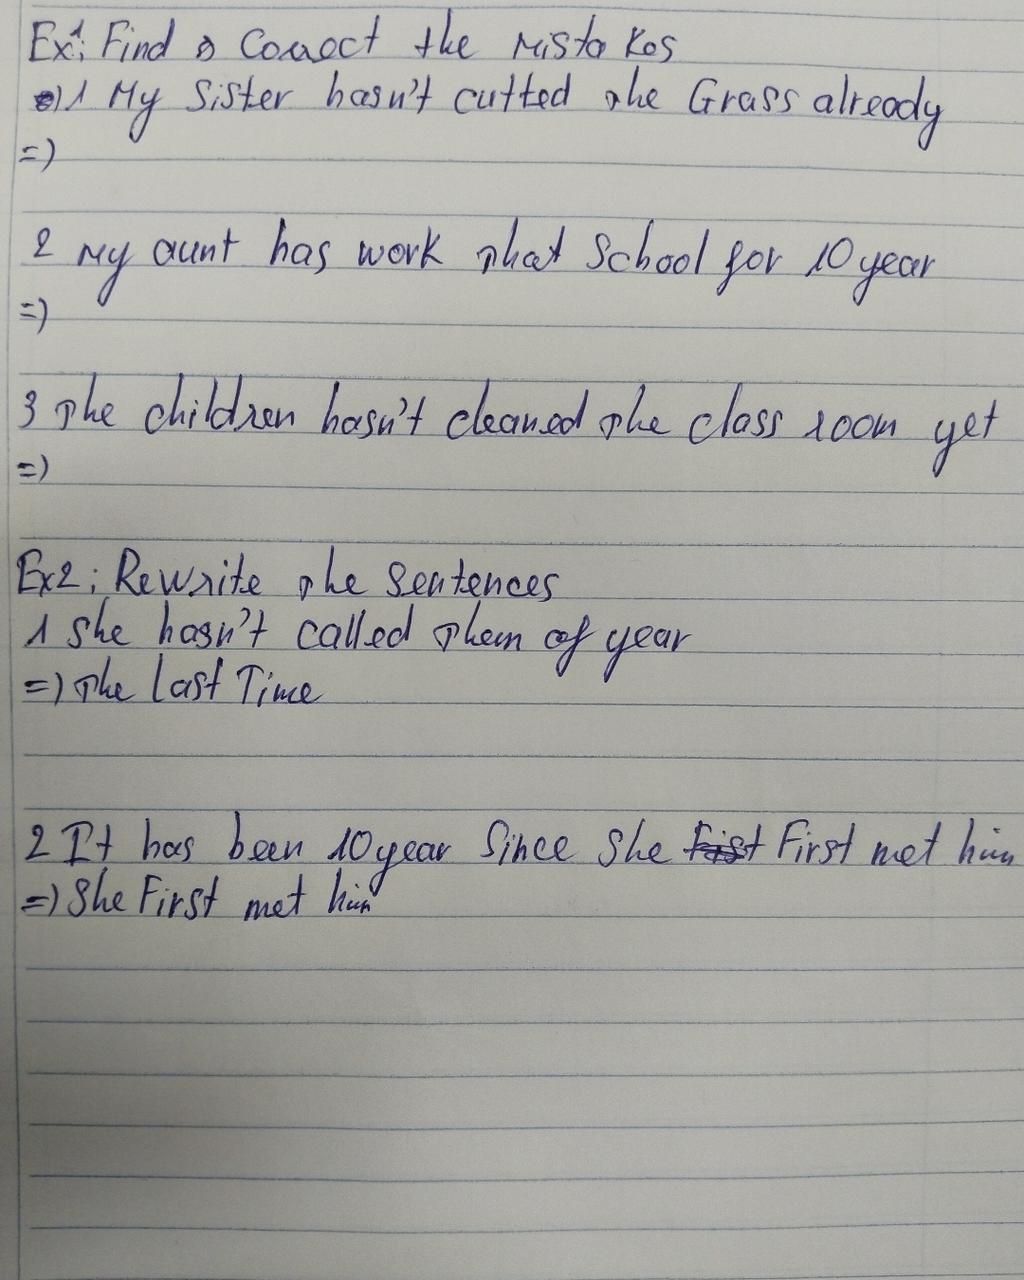 Ex1: Find & Correct the Mistakes
1 My Sister hasn't cutted the Grass already
=)
2 My aunt has work that School for 10 year
=)
3 The children hasn't cleaned the class room yet
=)
Ex2: Rewrite the Sentences
1 She hasn't called them of year
=) The last Time
2 It has been 10 year Since She First met him
=) She First met him